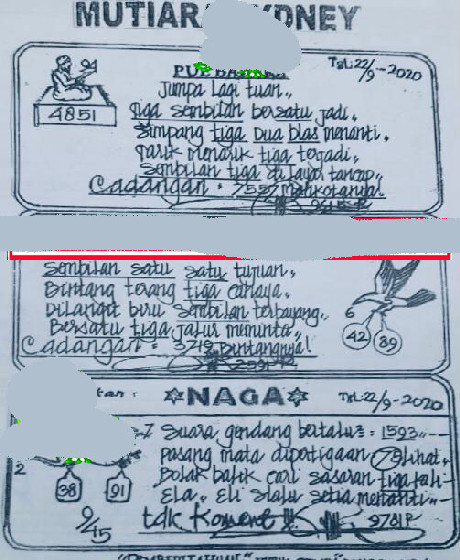 MUTIARA SYDNEY
Tgl: 22/9-2020
94
4851
Jumpa lagi tuan,,
Tiga sembilan bersatu jadi.
Simpang tiga dua blas menanti.
Tarik menarik tiga terjadi,
Sembilan tiga
Cadangan : 7557
Sembilan satu satu tujuan,,
Bintang terang tiga cahaya.
Dilangit biru sembilan terbayang,,
Bersatu tiga jalur meminta,,
Cadangan : 3719 Bintangnya!
6
42 89
NAGA
Tgl: 22/9-2020
Suara gendang bertalu2 = 1593,,--
pasang mata dipertigaan 7 dilihat,-
Bolak balik cari sasaran tiga kali-
Ela,, Eli slalu setia menanti,,--
2
38 91
9/45
tdk Koment !!
9781P